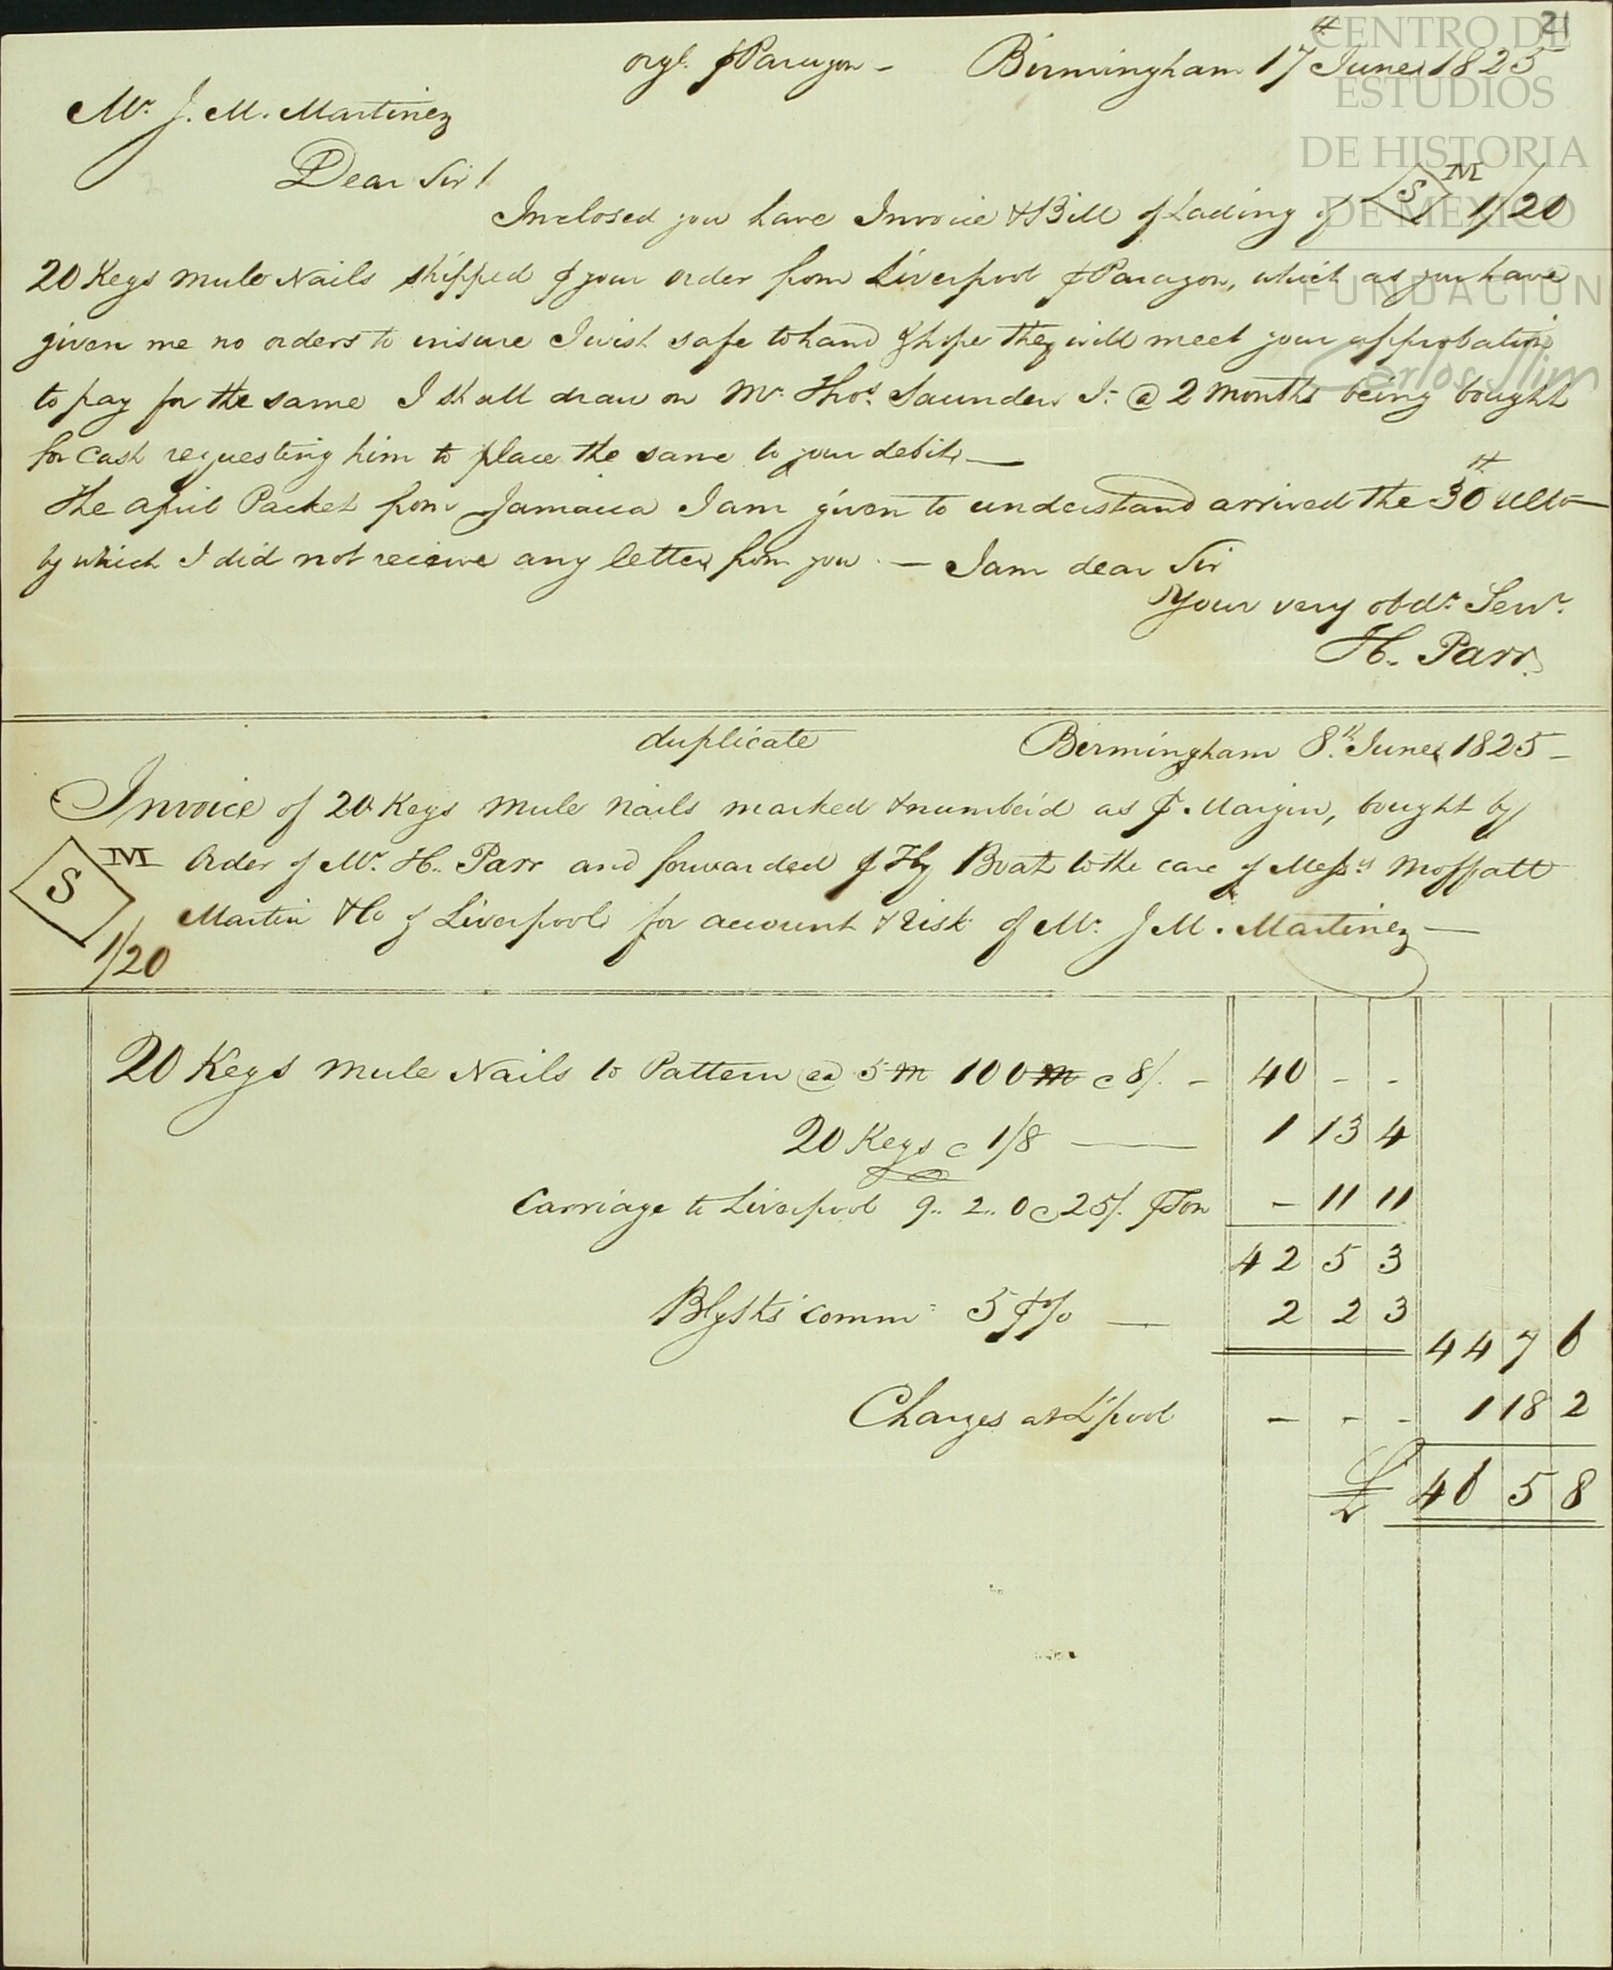 21
CENTRO DE
ESTUDIOS
DE HISTORIA
DE MEXICO
FUNDACION
Carlos Slim
orgl. ⅌ Paragon - Birmingham 17th June 1825
Mr. J. M. Martinez
Dear Sir!
Inclosed you have Invoice & Bill of Lading of S M 1/20
20 Kegs Mule Nails shipped ⅌ your order from Liverpool ⅌ Paragon, which as you have
given me no orders to insure I wish safe to hand & hope they will meet your approbation
to pay for the same I shall draw on Mr. Thos. Saunders Jr. @ 2 Months being bought
for Cash requesting him to place the same to your debit —
The april Packet from Jamaica I am given to understand arrived the 30th Ulto —
by which I did not recieve any letter from you. — I am dear Sir
Your very obdt. Servt.
H. Parr.
duplicate Birmingham 8th. June 1825 -
Invoice of 20 Kegs Mule Nails marked & numberd as ⅌ Margin, bought by
S M Order of Mr. H. Parr and forwarded ⅌ Fly Boat to the care of Messrs Moffatt
1/20 Martin & Co of Liverpool for account & Risk of Mr. J M. Martinez —
20 Kegs Mule Nails to Pattern ea 5 m 100 m @ 8/. - 40 - -
20 Kegs @ 1/8 — 1 13 4
Carriage to Liverpool 9.. 2.. 0 @ 25/. ⅌ Ton - 11 11
42 5 3
comm: 5 ⅌% — 2 2 3
44 7 6
Charges at L'pool - - - 1 18 2
£ 46 5 8